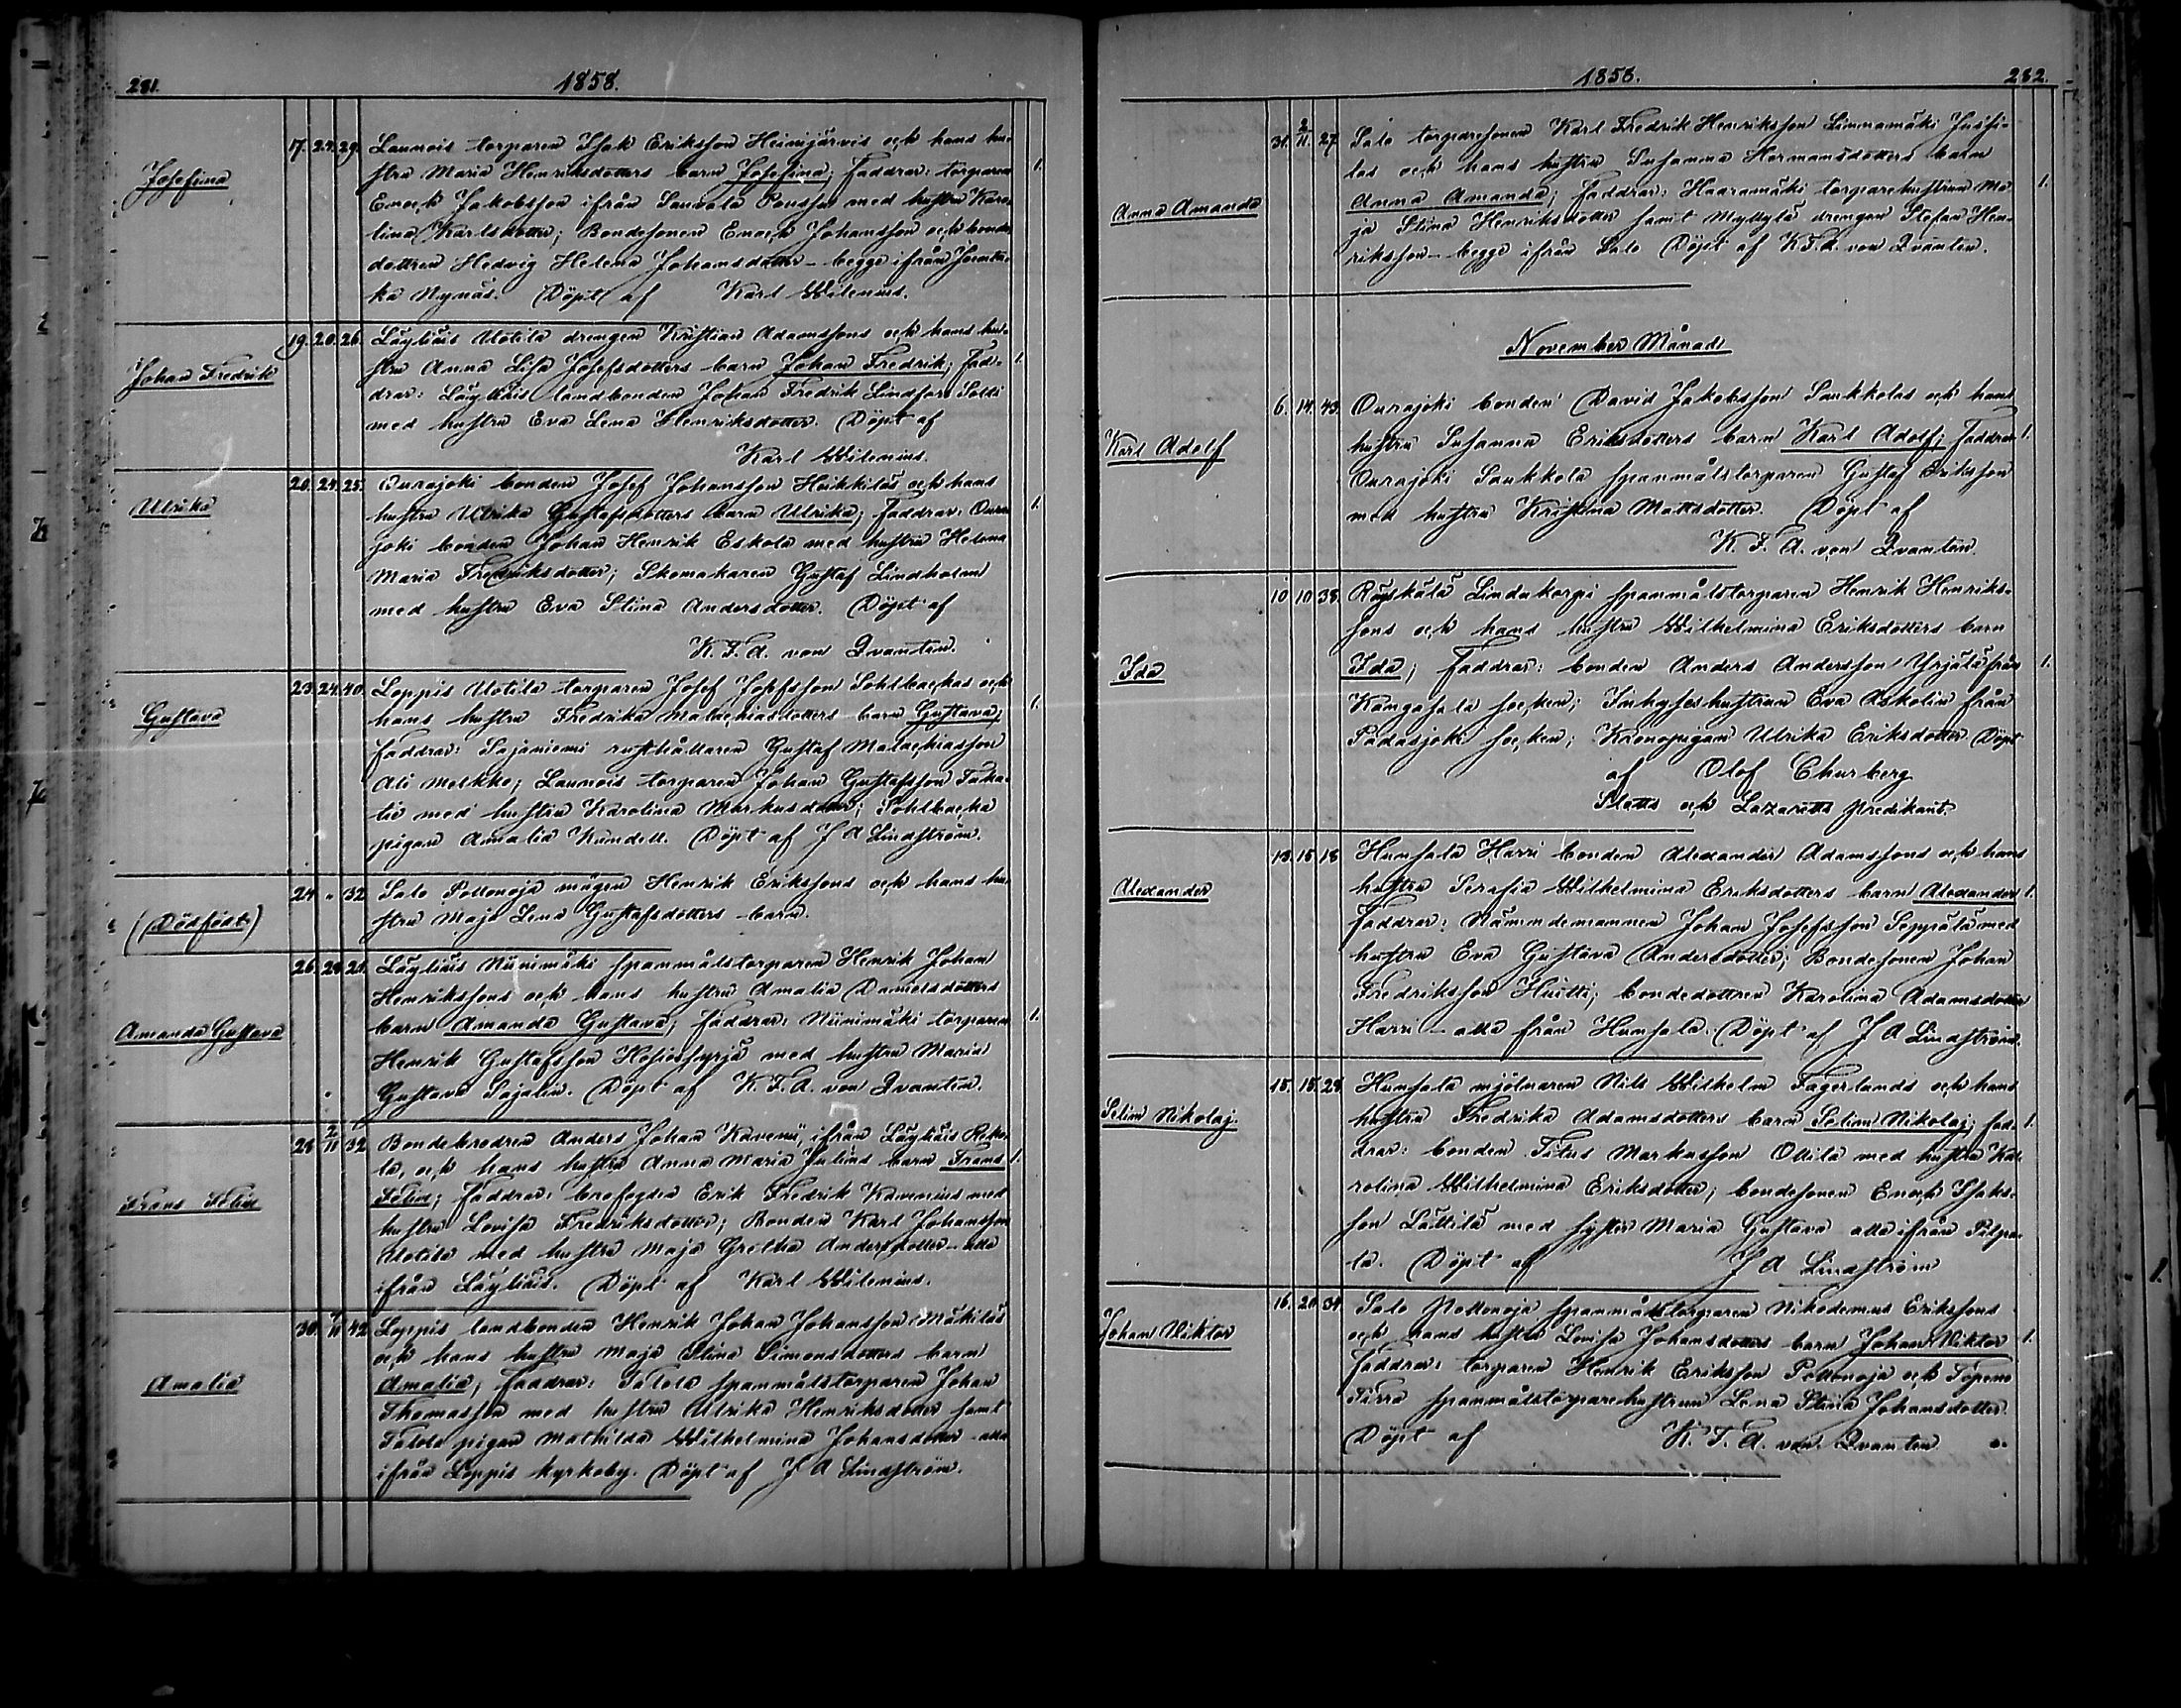 281.
1858.
Josefina
17. 24. 29. Launois torparen Isak Eriksson Heinijärvis och hans hu-
stru Maria Henriksdotters barn Josefina; Faddrar: torparen 1.
Enock Jakobsson ifrån Sauvala Poussa med hustru Karo-
lina Karlsdotter; Bondesonen Enock Johansson och bonde
dottren Hedvig Helena Johansdotter – begge ifrån
ka Nynäs. Döpt af Karl Wilenius.
Johan Fredrik
19. 20. 26. Läyliäis Uotila drengen Kristian Adamssons och hans hu-
stru Anna Lisa Josefsdotters barn Johan Fredrik; Fad- 1.
drar: Läyliäis landbonden Johan Fredrik Lindfors Solli
med hustru Eva Lena Henriksdotter. Döpt af
Karl Wilenius.
Ulrika
20. 24. 25. Ourajoki bonden Josef Johansson Heikkiläs och hans
hustru Ulrika Gustafsdotters barn Ulrika; Faddrar: Oura 1.
joki bonden Johan Henrik Eskola med hustru Helena
Maria Fredriksdotter; Skomakaren Gustaf Lindholm
med hustru Eva Stina Andersdotter. Döpt af
K. F. A. von Qvanten.
Gustava
23. 24. 40. Loppis Uotila torparen Josef Josefsson Sohlbackas och
hans hustru Fredrika Malachiasdotters barn Gustava; 1.
Faddrar: Sajaniemi rusthållaren Gustaf Malachiasson
Ali Melkko; Launois torparen Johan Gustafsson Taka-
lio med hustru Karolina Markusdotter; Sohlbacka
pigan Amalia Kundell. Döpt af J A Lindström.
(Dödfödt)
24. " 32. Salo Pottonoja mågen Henrik Erikssons och hans hu-
stru Maja Lena Gustafsdotters barn.
Amanda Gustava
26. 28. 21. Läyliäis Niinimäki spannmålstorparen Henrik Johan
Henrikssons och hans hustru Amalia Danielsdotters
barn Amanda Gustava; Faddrar: Niinimäki torparen 1.
Henrik Gustafsson med hustru Maria
Gustava Sajalin. Döpt af K. F. A. von Qvanten.
Frans Felin
28. 2/11 32. Bondebrodren Anders Johan Kavenii, ifrån Läyliäis Reko-
la, och hans hustru Anna Maria Julins barn Frans 1.
Felin; Faddrar: brofogden Erik Fredrik Kavenius med
hustru Lovisa Fredriksdotter; Bonden Karl Johansson
Uotila med hustru Maja Gretha Andersdotter – alla
ifrån Läyliäis. Döpt af Karl Wilenius.
Amalia
30. 7/11 42. Loppis landbonden Henrik Johan Johansson Mäkiläs
och hans hustru Maja Stina Simonsdotters barn
Amalia; Faddrar: Talola spannmålstorparen Johan
Thomasson med hustru Ulrika Henriksdotter samt
Talola pigan Mathilda Wilhelmina Johansdotter – alla
ifrån Loppis kyrkoby. Döpt af J A Lindström.
1858.
282.
Anna Amanda
31. 2/11. 27. Salo torparesonen Karl Fredrik Henriksson Linnamäki Jussi-
las och hans hustru Susanna Hermansdotters barn
Anna Amanda; Faddrar: Haaramäki torparehustrun Ma- 1.
ja Stina Henriksdotter samt Myllylä drengen Stefan Hen-
riksson – begge ifrån Salo Döpt af K. F. A. von Qvanten.
November Månad
Karl Adolf
6. 14. 43. Ourajoki bonden David Jakobsson Saukkolas och hans
hustru Susanna Eriksdotters barn Karl Adolf; Faddrar 1.
Ourajoki Saukkola spannmålstorparen Gustaf Eriksson
med hustru Kristina Mattsdotter. Döpt af
K. F. A. von Qvanten.
Ida
10 10 38. Räyskälä Lindukorpi spannmålstorparen Henrik Henriks-
sons och hans hustru Wilhelmina Eriksdotters barn
Ida; Faddrar: bonden Anders Andersson Yrjälä från 1.
Kangasala socken; Inhyseshustrun Eva Askolin från
Padasjoki socken; Kronopigan Ulrika Eriksdotter Döpt
af Olof Churberg
Slotts och Lazaretts predikant.
Alexander
13. 15. 18 Hunsala Harri bonden Alexander Adamssons och hans
hustru Serafia Wilhelmina Eriksdotters barn Alexander 1.
Faddrar: Nämndemannen Johan Josefsson Seppälä med
hustru Eva Gustava Andersdotter; Bondesonen Johan
Fredriksson Huitti; bondedottren Karolina Adamsdotter
Harri – alla från Hunsala. Döpt af J A Lindström.
Selim Nikolaj.
15. 15. 28. Hunsala mjölnaren Nils Wilhelm Fagerlunds och hans
hustru Fredrika Adamsdotters barn Selim Nikolaj; Fad- 1.
drar: bonden Titus Markusson Ollila med hustru Ka-
rolina Wilhelmina Eriksdotter; bondesonen Enock Isaks-
son Lättilä med syster Maria Gustava alla ifrån Pilpa-
la. Döpt af J A Lindström
Johan Viktor
16. 20. 34. Salo Pottonoja spannmålstorparen Nikodemus Erikssons
och hans hustru Lovisa Johansdotters barn Johan Viktor 1.
Faddrar: torparen Henrik Eriksson Pottonoja och Topeno
Tirra spannmålstorparehustrun Lena Stina Johansdotter.
Döpt af K. F. A. von Qvanten